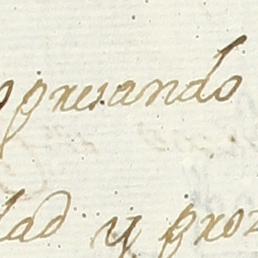 opresando
dad y pron